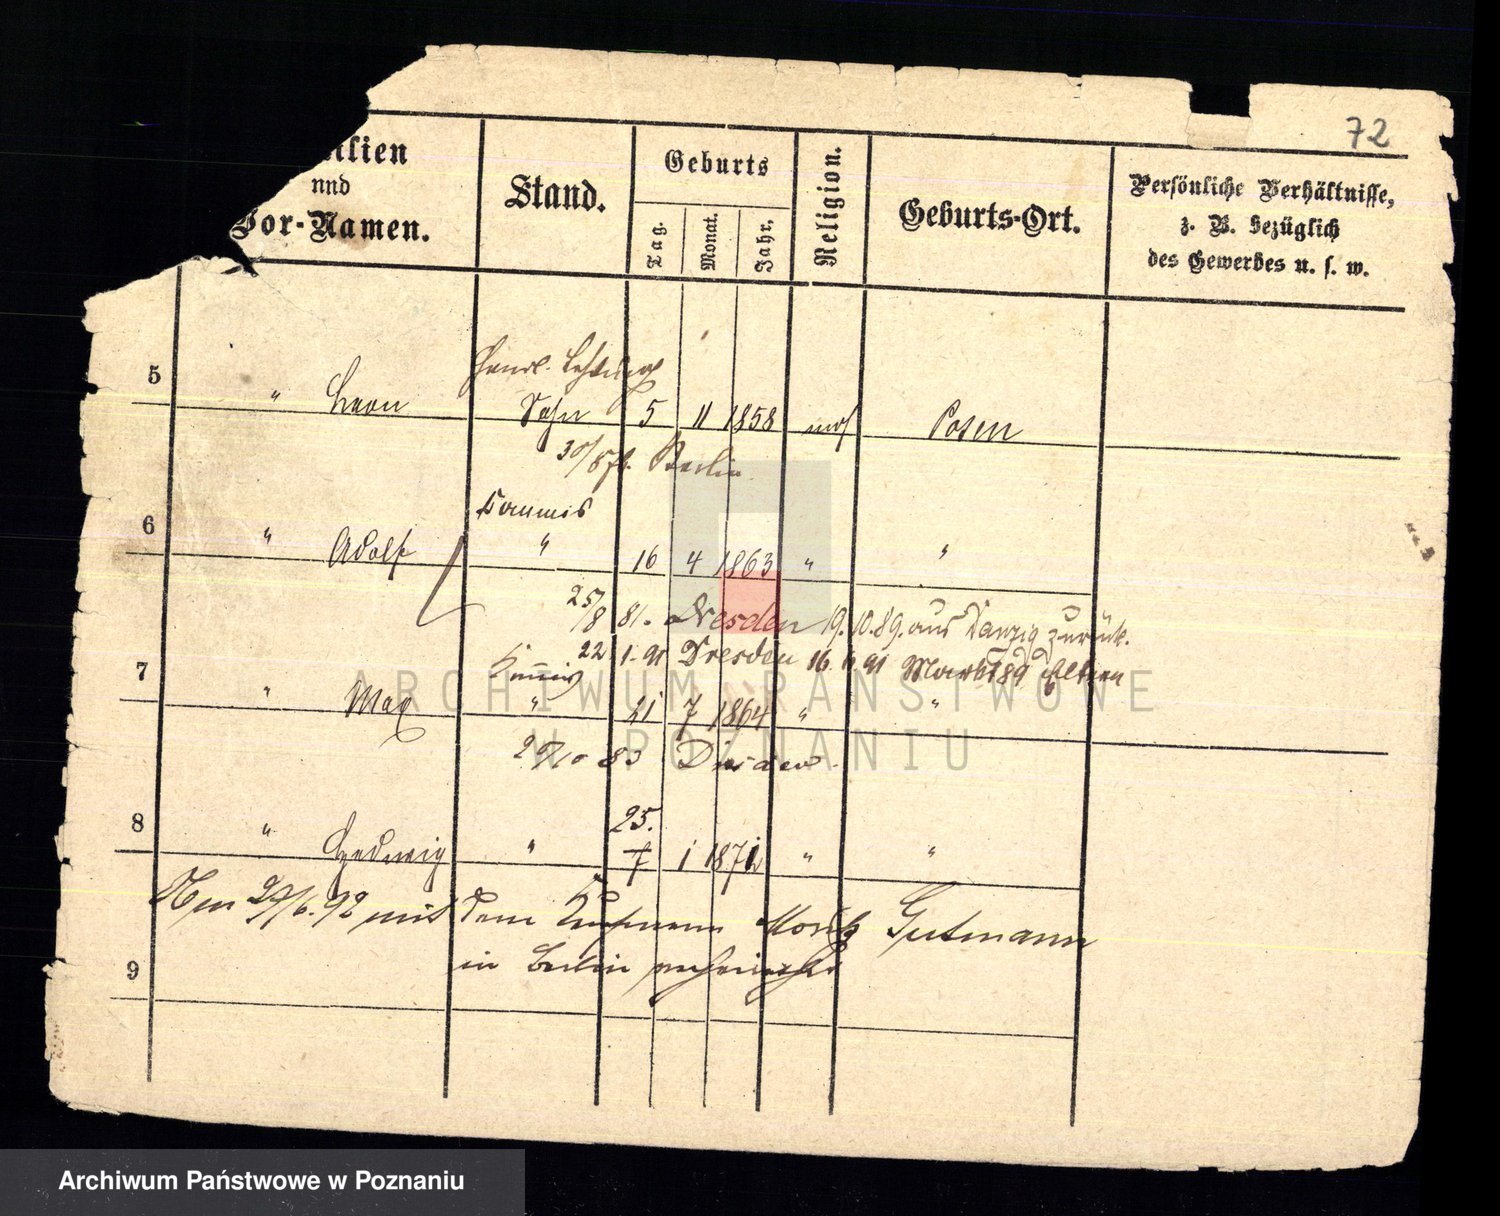 72
ilien
und
Vor-Namen.
Stand.
Geburts
Tag.
Monat.
Jahr.
Religion.
Geburts-Ort.
Persönliche Verhältnisse,
z. B. bezüglich
des Gewerbes u. s. w.
Handl. Lehrling
5 " Leon Sohn 5 11 1858 mos Posen
30/8 Berlin
Commis
6 " Adolf " 16 4 1863 " "
25/8 81. Dresden 19.10.89. aus Danzig zurück.
22 1. 91 Dresden 16 91 Markt 89 Eltern
Commis
7 " Max " 21 7 1864 " "
10 83 Dresden.
25.
8 " Hedwig " 7 1 1871 " "
Am 29/6. 92 mit dem Kaufmann Moritz Gutmann
in Berlin verheirathet
9
ARCHIWUM PAŃSTWOWE
W POZNANIU
Archiwum Państwowe w Poznaniu